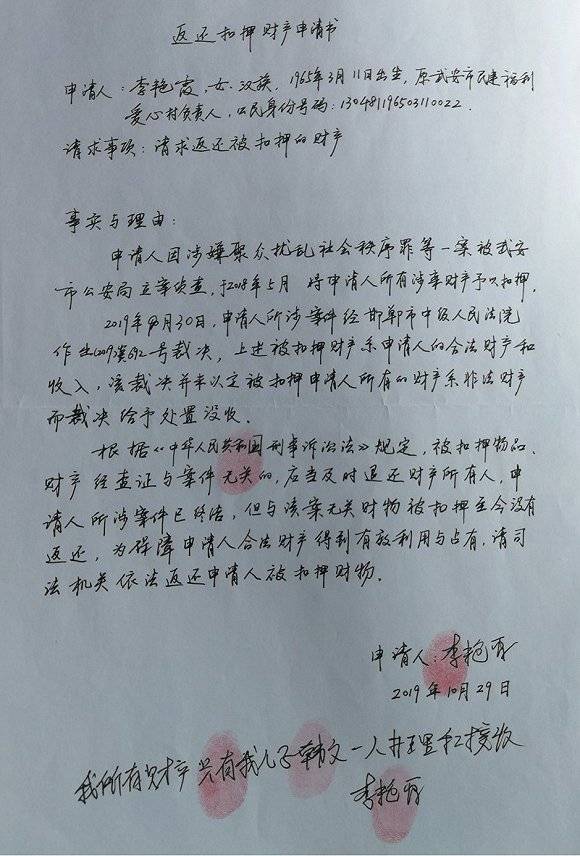 返还扣押财产申请书
申请人：李艳霞，女，汉族，1965年3月11日出生，原武安市民建福利
爱心村负责人，公民身份号码：130481196503110022.
请求事项：请求返还被扣押的财产
事实与理由：
申请人因涉嫌聚众扰乱社会秩序罪等一案被武安
市公安局立案侦查，于2018年5月 将申请人所有涉案财产予以扣押。
2019年8月30日，申请人所涉案件经邯郸市中级人民法院
作出 692号裁决，上述被扣押财产系申请人的合法财产和
收入，该裁决并未认定被扣押申请人所有的财产系非法财产
而裁决给予处置没收。
根据《中华人民共和国刑事诉讼法》规定，被扣押物品、
财产经查证与案件无关的，应当及时退还财产所有人，申
请人所涉案件已终结，但与该案无关财物被扣押至今没有
返还，为保障申请人合法财产得到有效利用与占有，请司
法机关依法返还申请人被扣押财物。
申请人：李艳霞
2019年10月29日
我所有财产 有我儿子韩文一人 接收
李艳霞